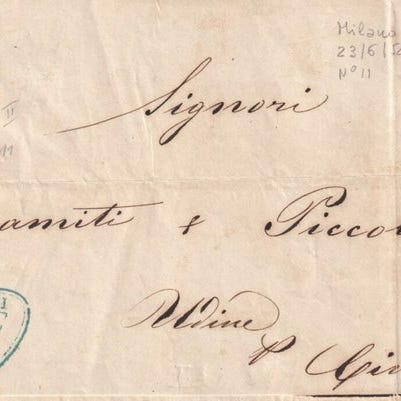 Milano
23/6/5
N° 11
Signori
II
11
amiti & Picco
Udine
p Civ